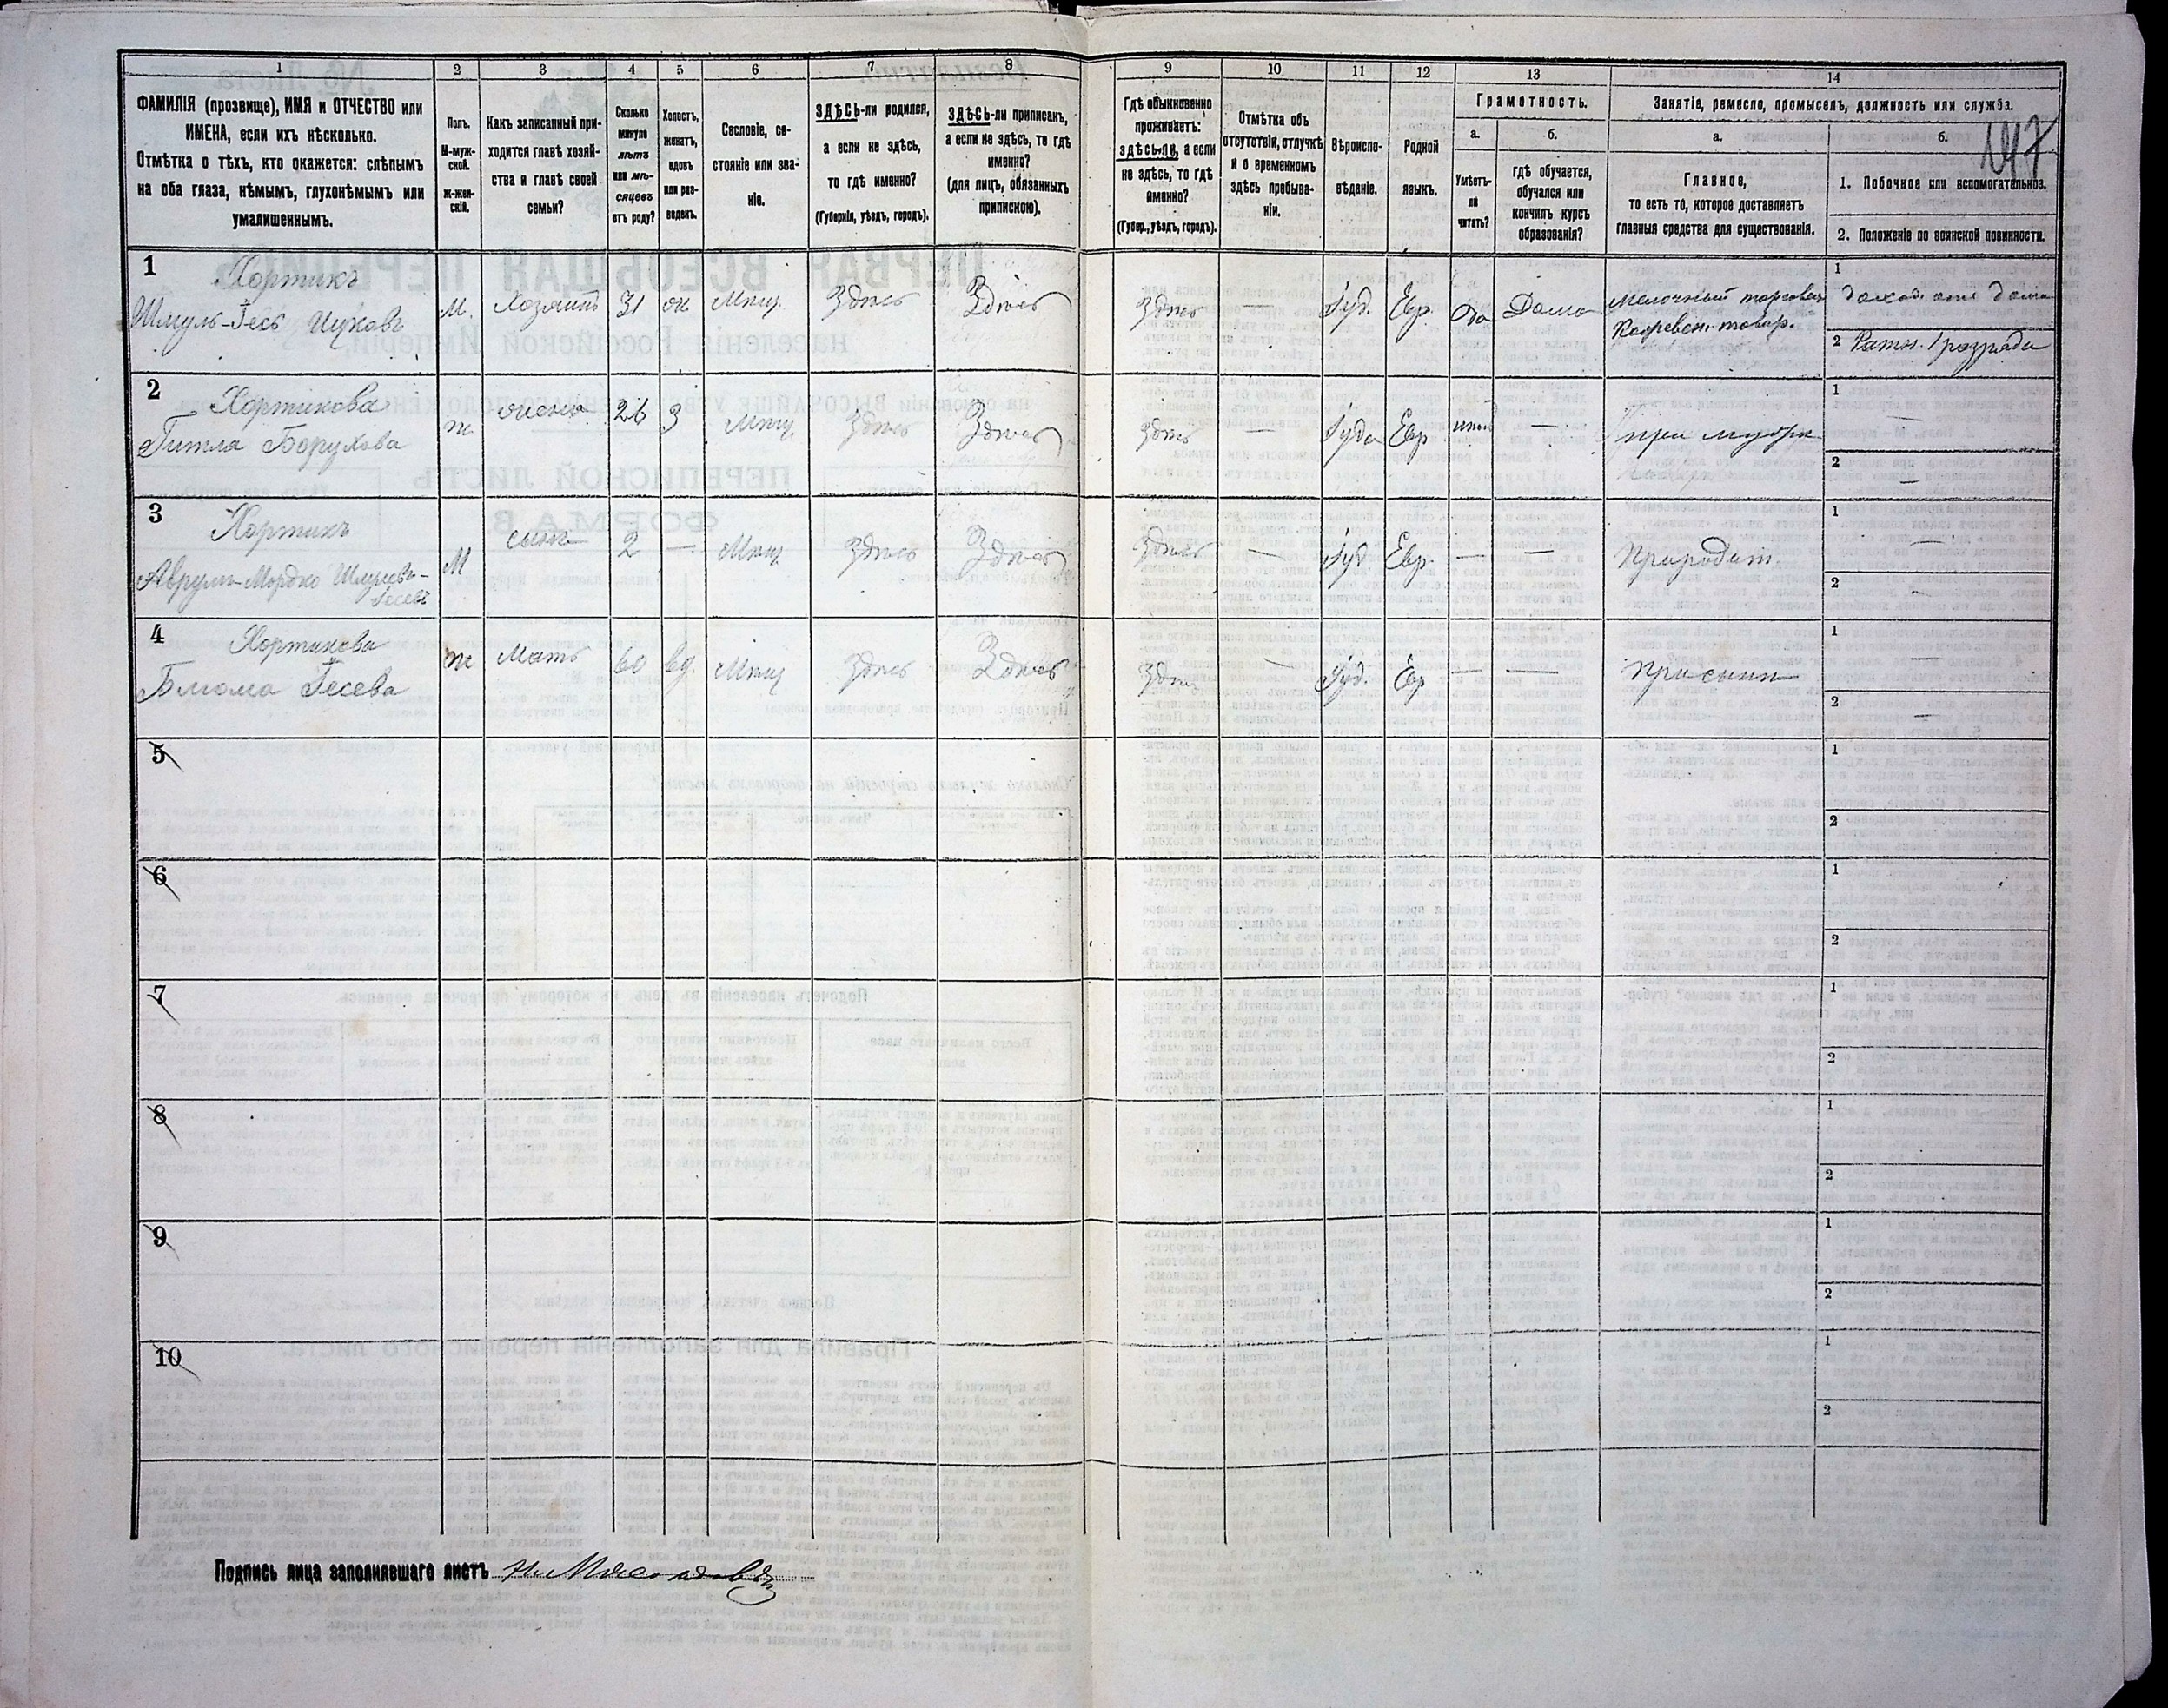 1 2 3 4 5 6 7 8 9 10 11 12 13 14
ФАМИЛІЯ (прозвище), ИМЯ и ОТЧЕСТВО или ИМЕНА, если ихъ нѣсколько.
Отмѣтка о тѣхъ, кто окажется: слѣпымъ на оба глаза, нѣмымъ, глухонѣмымъ или умалишеннымъ.
Полъ.
М-мужской.
ж-женскій.
Какъ записанный приходится главѣ хозяйства и главѣ своей семьи?
Сколько минуло лѣтъ или мѣсяцевъ отъ роду?
Холостъ, женатъ, вдовъ или разведенъ.
Сословіе, состояніе или званіе.
ЗДѢСЬ-ли родился, а если не здѣсь, то гдѣ именно?
(Губернія, уѣздъ, городъ).
ЗДѢСЬ-ли приписанъ, а если не здѣсь, то гдѣ именно?
(для лицъ, обязанныхъ припискою).
Гдѣ обыкновенно проживаетъ: здѣсь-ли, а если не здѣсь, то гдѣ именно?
(Губер., уѣздъ, городъ).
Отмѣтка объ отсутствіи, отлучкѣ и о временномъ здѣсь пребываніи.
Вѣроисповѣданіе.
Родной языкъ.
Грамотность.
а.
Умѣетъ-ли читать?
б.
гдѣ обучается, обучался или кончилъ курсъ образованія?
Занятіе, ремесло, промыселъ, должность или служба.
а.
Главное,
то есть то, которое доставляетъ главныя средства для существованія.
б.
147
1. Побочное или вспомогательное.
2. Положеніе по воинской повинности.
1 Хортикъ
Шмуль-Іесь Ицковъ М. Хозяинъ 31 Мѣщ. Здѣсь Здѣсь Здѣсь — Іуд. Евр. да Дома Мелочный торговецъ
1 доход. отъ дома
2 Ратн. 1 разряда
2 Хортикова
Гитля Борухова ж жена 26 З Мѣщ. Здѣсь Здѣсь Здѣсь — Іуд Евр — при мужѣ
1 —
2 —
3 Хортикъ
Аврумъ-Мордко Шмулевъ-Іесевъ М сынъ 2 — Мѣщ. Здѣсь Здѣсь Здѣсь — Іуд Евр. — —
1 —
2 —
4 Хортикова
Блюма Іесева ж Мать 60 вд. Мѣщ Здѣсь Здѣсь Здѣсь — Іуд. Евр — — при сынѣ
1 —
2 —
5 1
2
6 1
2
7 1
2
8 1
2
9 1
2
10 1
2
Подпись лица заполнявшаго листъ